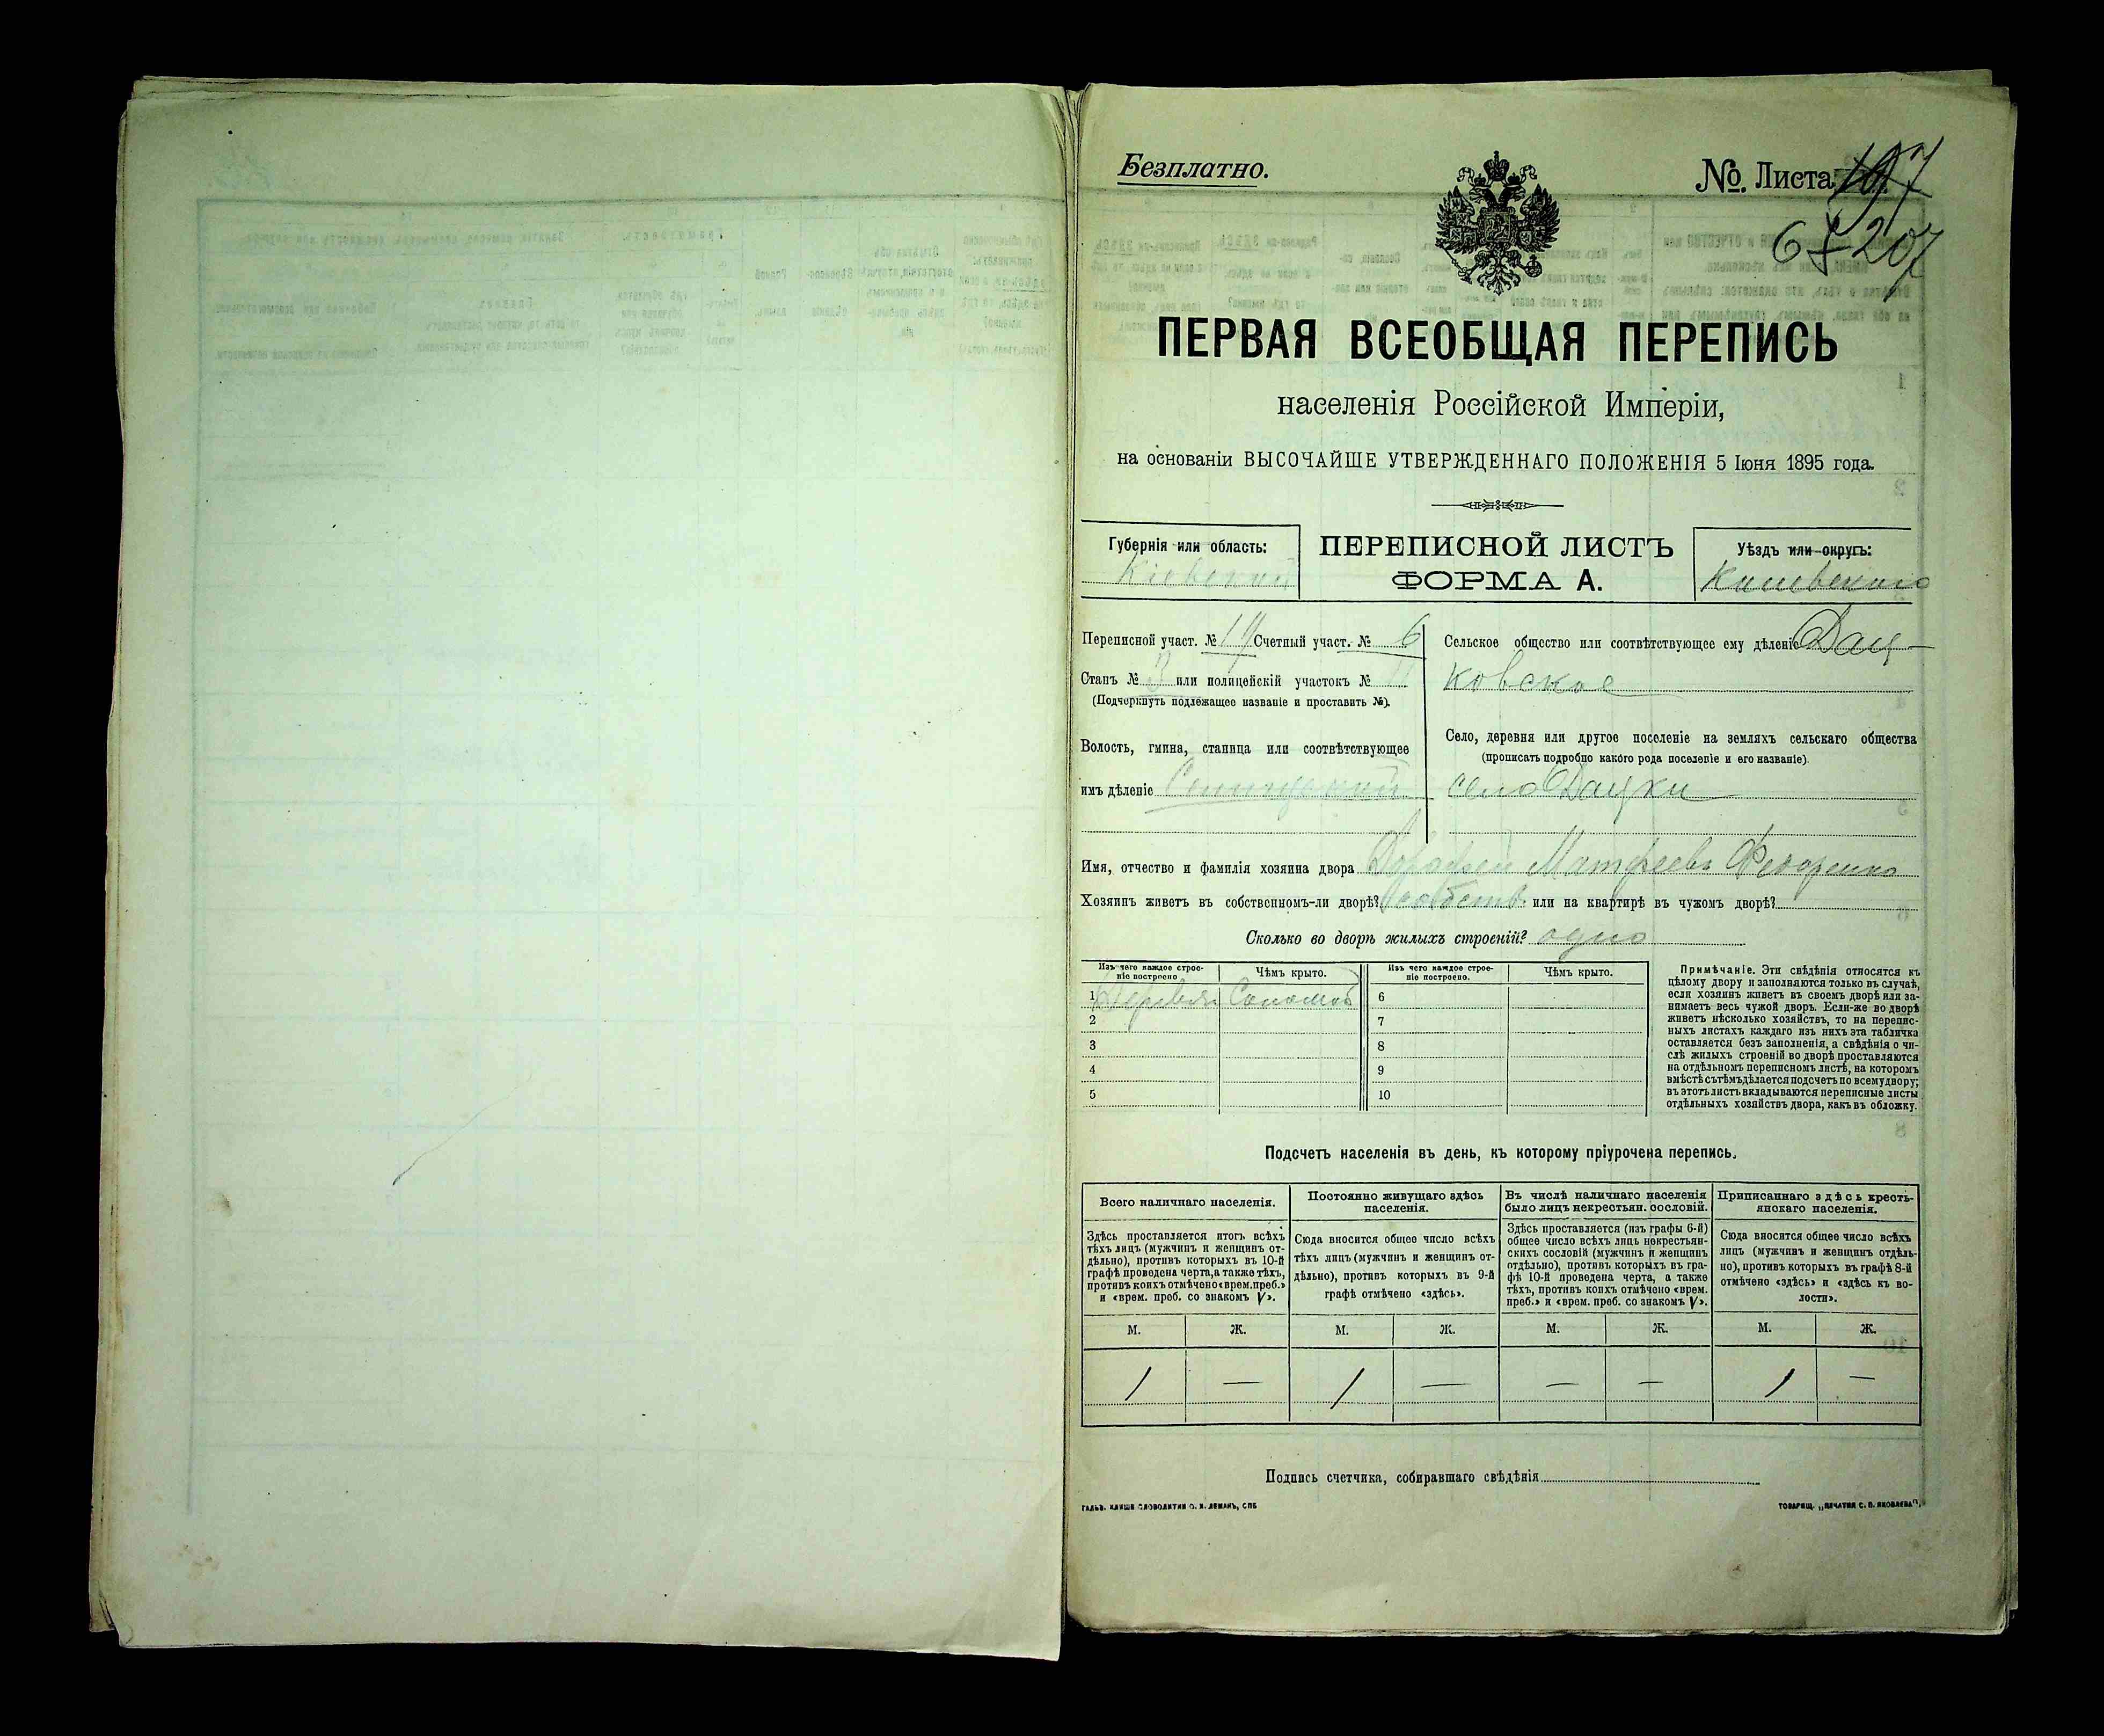 Безплатно.
№. Листа 107
67 207
ПЕРВАЯ ВСЕОБЩАЯ ПЕРЕПИСЬ
населенія Россійской Имперіи,
на основаніи ВЫСОЧАЙШЕ УТВЕРЖДЕННАГО ПОЛОЖЕНІЯ 5 Іюня 1895 года.
Губернія или область:
Кіевской
ПЕРЕПИСНОЙ ЛИСТЪ
ФОРМА А.
Уѣздъ или округъ:
Каневскаго
Переписной участ. № 19 Счетный участ. № 6
Станъ № 3 или полицейскій участокъ №
(Подчеркнуть подлежащее названіе и проставить №).
Волость, гмина, станица или соотвѣтствующее
имъ дѣленіе
Сельское общество или соотвѣтствующее ему дѣленіе Дац-
ковское
Село, деревня или другое поселеніе на земляхъ сельскаго общества
(прописать подробно какого рода поселеніе и его названіе).
село Дацки
Имя, отчество и фамилія хозяина двора Дорофей Матфеевъ Федоренко
Хозяинъ живетъ въ собственномъ-ли дворѣ? собств. или на квартирѣ въ чужомъ дворѣ?
Сколько во дворѣ жилыхъ строеній? одно
Изъ чего каждое строе-
ніе построено
Чѣмъ крыто.
Изъ чего каждое строе-
ніе построено.
Чѣмъ крыто.
1 Деревян Соломой 6
2 7
3 8
4 9
5 10
Примѣчаніе. Эти свѣдѣнія относятся къ
цѣлому двору и заполняются только въ случаѣ,
если хозяинъ живетъ въ своемъ дворѣ или за-
нимаетъ весь чужой дворъ. Если-же во дворѣ
живетъ нѣсколько хозяйствъ, то на перепис-
ныхъ листахъ каждаго изъ нихъ эта табличка
оставляется безъ заполненія, а свѣдѣнія о чи-
слѣ жилыхъ строеній во дворѣ проставляются
на отдѣльномъ переписномъ листѣ, на которомъ
вмѣстѣ съ тѣмъ дѣлается подсчетъ по всему двору;
въ этотъ листъ вкладываются переписные листы
отдѣльныхъ хозяйствъ двора, какъ въ обложку.
Подсчетъ населенія въ день, къ которому пріурочена перепись.
Всего наличнаго населенія.
Здѣсь проставляется итогъ всѣхъ
тѣхъ лицъ (мужчинъ и женщинъ от-
дѣльно), противъ которыхъ въ 10-й
графѣ проведена черта, а также тѣхъ,
противъ коихъ отмѣчено «врем. преб.»
и «врем. преб. со знакомъ V».
Постоянно живущаго здѣсь
населенія.
Сюда вносится общее число всѣхъ
тѣхъ лицъ (мужчинъ и женщинъ от-
дѣльно), противъ которыхъ въ 9-й
графѣ отмѣчено «здѣсь».
Въ числѣ наличнаго населенія
было лицъ некрестьян. сословій.
Здѣсь проставляется (изъ графы 6-й)
общее число всѣхъ лицъ некрестьян-
скихъ сословій (мужчинъ и женщинъ
отдѣльно), противъ которыхъ въ гра-
фѣ 10-й проведена черта, а также
тѣхъ, противъ коихъ отмѣчено «врем.
преб.» и «врем. преб. со знакомъ V».
Приписаннаго здѣсь кресть-
янскаго населенія.
Сюда вносится общее число всѣхъ
лицъ (мужчинъ и женщинъ отдѣль-
но), противъ которыхъ въ графѣ 8-й
отмѣчено «здѣсь» и «здѣсь къ во-
лости».
М. Ж. М. Ж. М. Ж. М. Ж.
1 — 1 — — — 1 —
Подпись счетчика, собиравшаго свѣдѣнія
ГАЛЬВ. КЛИШЕ СЛОВОЛИТНИ О. И. ЛЕМАНЪ, СПБ
ТОВАРИЩ. „ПЕЧАТНЯ С. П. ЯКОВЛЕВА".